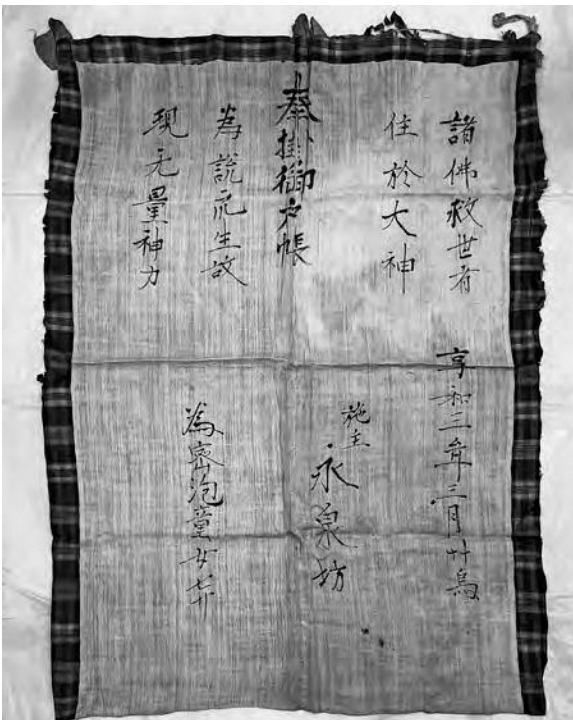 諸佛救世者
住於大神
奉掛御戸帳
為説衆生故
現无量神力
享和三年三月廿烏
施主 永泉坊
為密泡童女